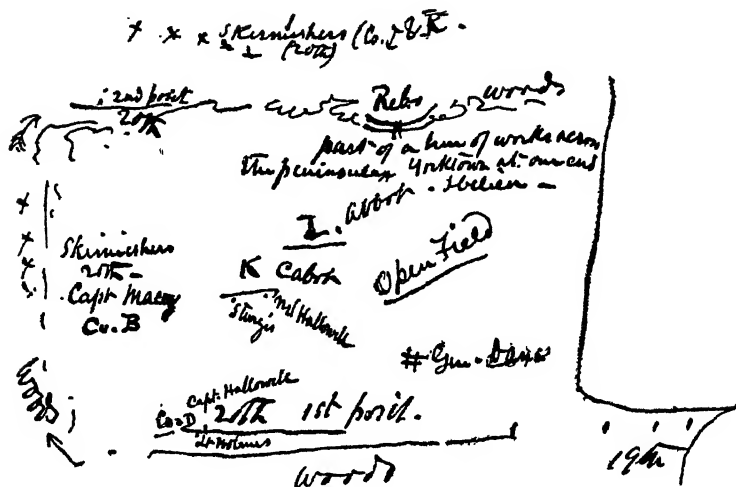 x x x Skirmishers (Co. I & K.
(20th)
2nd posit
20th
Rebs
woods
part of a line of works across
the peninsula Yorktown at one end
I. Abbot. I believe -
x
x
x
x
Skirmishers
20th -
Capt Macy
Co. B
K Cabot
Sturgis
Ned Hallowell
Open Field
# Gen. Dana
woods
Co. D
Capt. Hallowell
20th 1st posit.
Lt Holmes
woods
19th